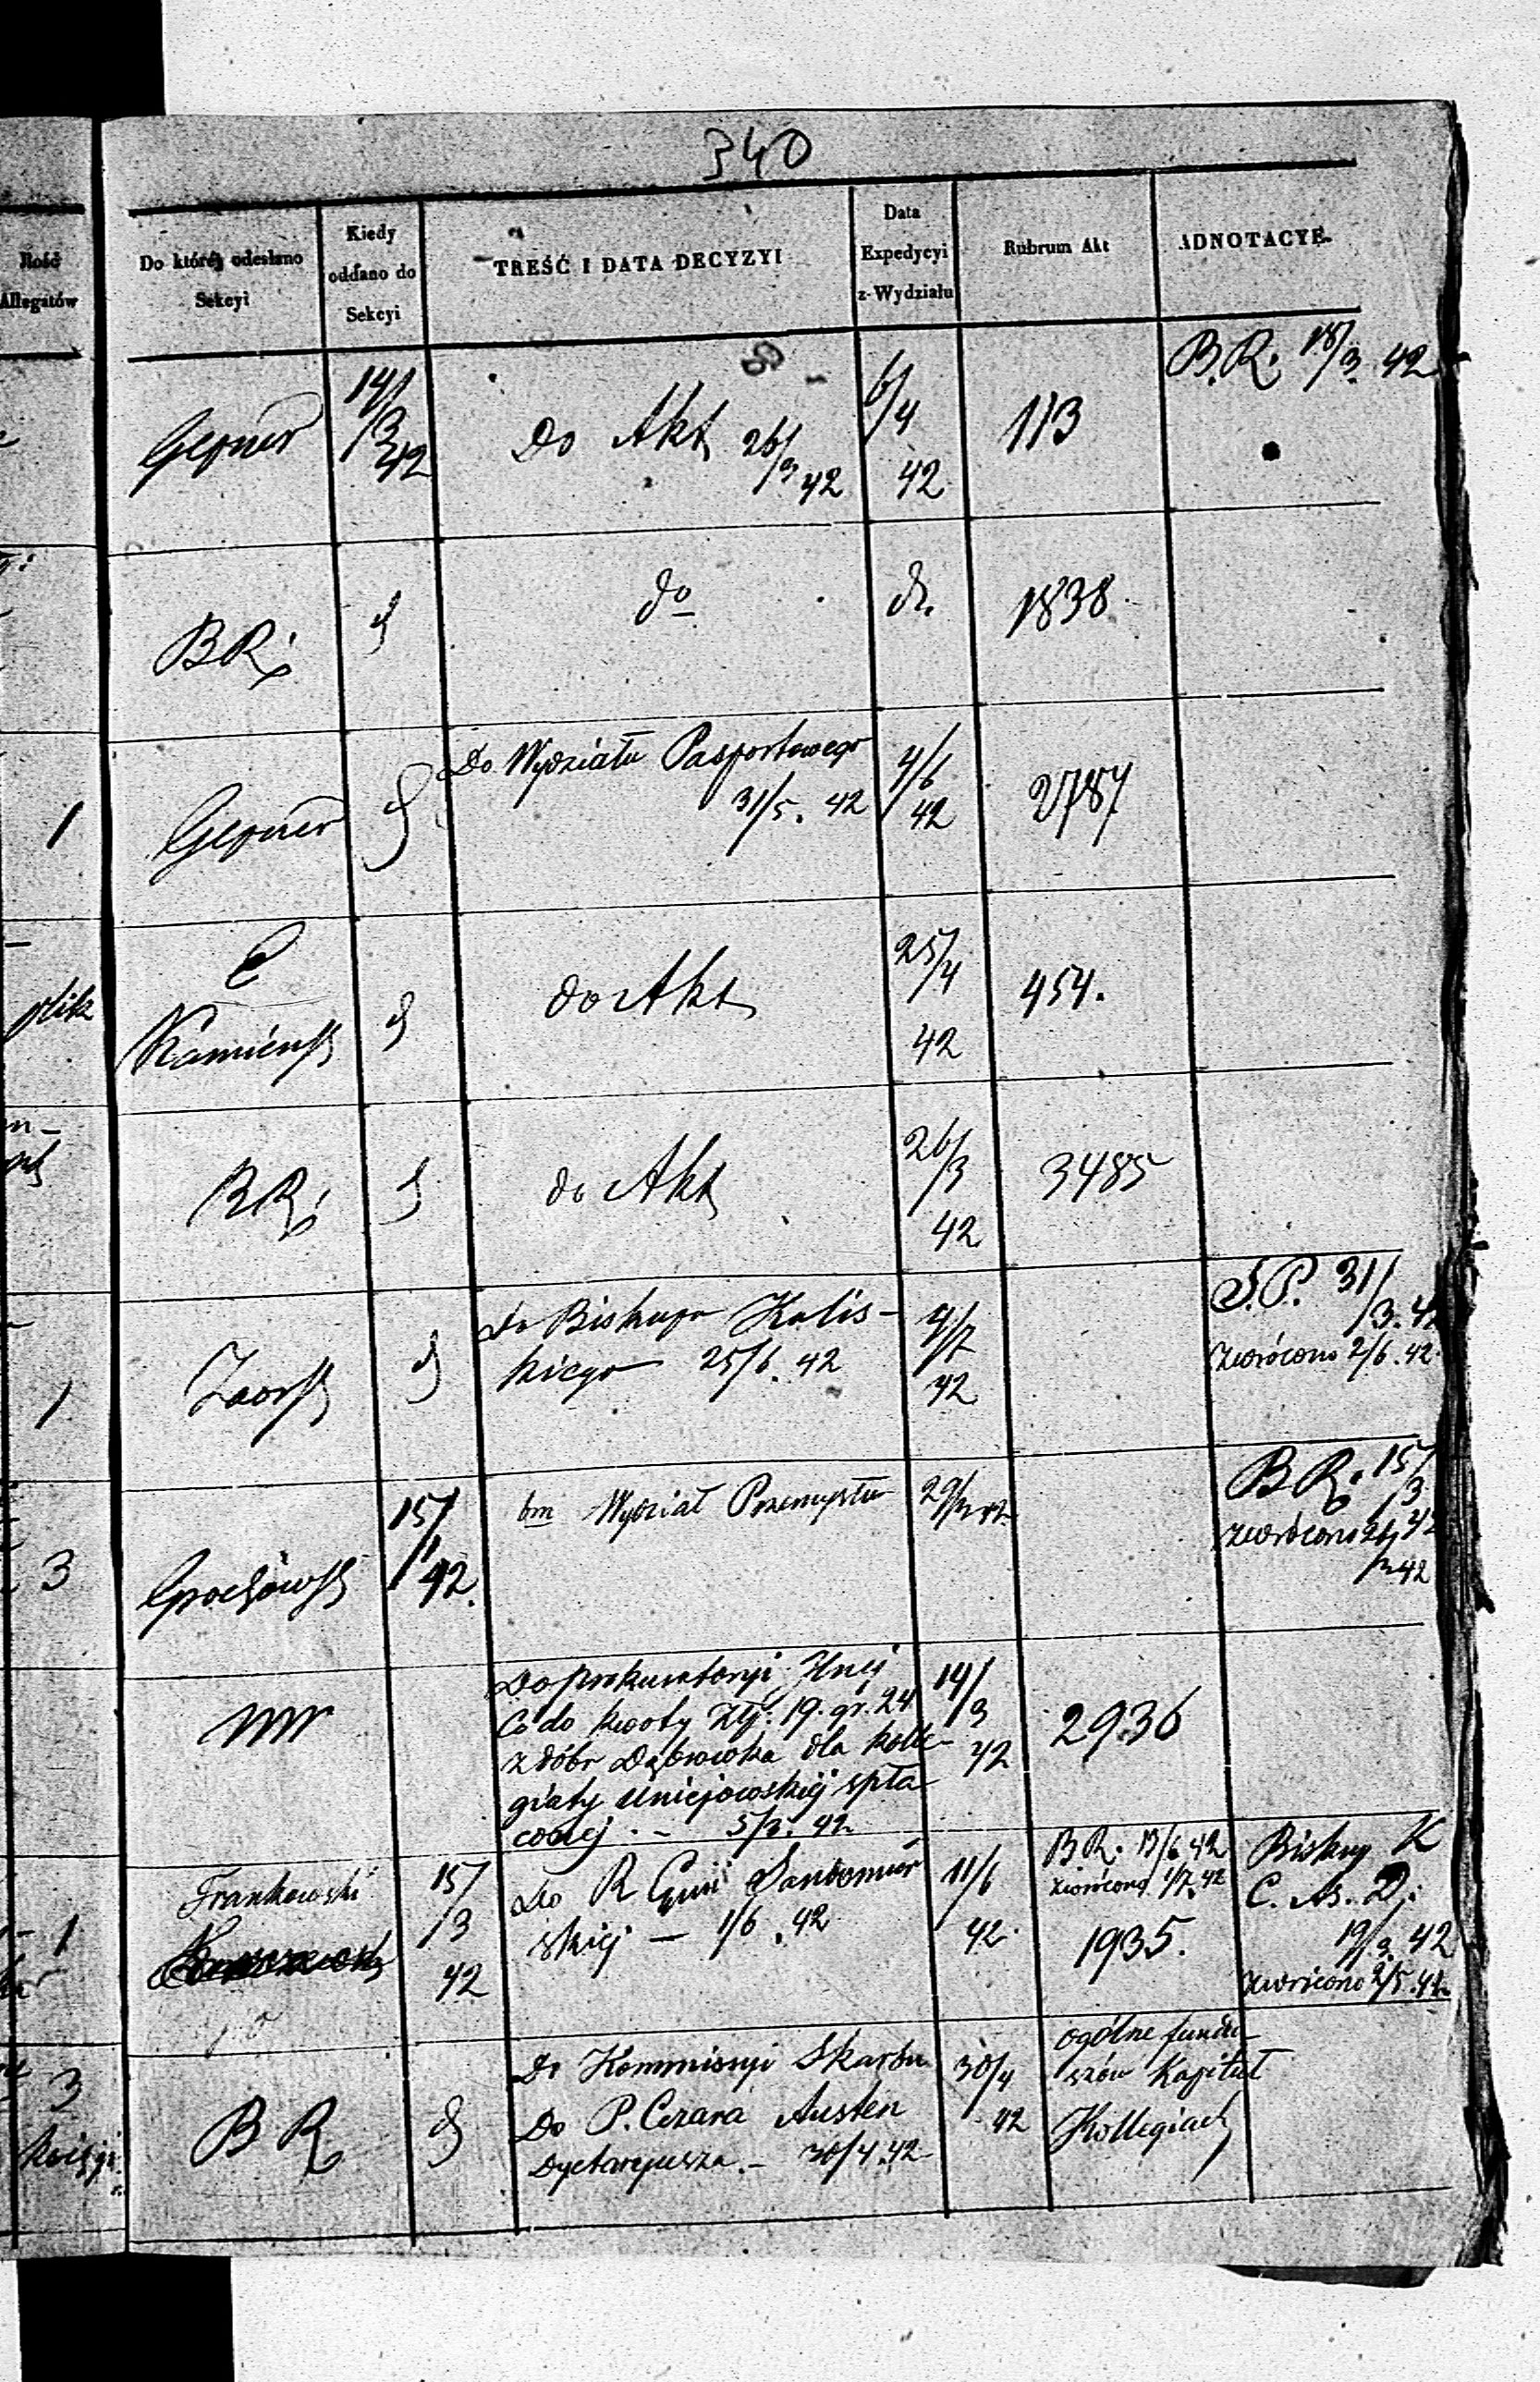 340
Ilość
Allegatów
Do której odesłano
Sekcyi
Kiedy
oddano do
Sekcyi
TREŚĆ I DATA DECYZYI
Data
Expedycyi
z Wydziału
Rubrum Akt
ADNOTACYE
Gepner
14/3 42
Do Akt 26/3 42
6/4 42
113
B.R. 18/3 42
BR.
do
do
1838
1
Gepner
Do Wydziału Pasportowego
31/5. 42
4/6 42
2787
plik
C
Kamieńsk
do Akt
25/4 42
454.
BR.
do Akt
26/3 42
3485
1
do Biskupa Kalis-
kiego 25/6. 42
4/7 42
S.P. 31/3. 42
zwrócono 2/6. 42
3
Grochowsk
15/ 42.
bm Wydział Przemysłu
BR. 15/3 42
zwrócono
Do prokuratoryi
Co do kwoty Złp: 19. gr. 24
z dóbr Dąbrówka dla kolle-
giaty Uniejowskiej spła
conej. - 5/3. 42
14/3 42
2936
1
Frankowski
15/3 42
Do R Gurii Sandomier
skiej - 1/6. 42
11/6 42
BR. 13/6 42
zwrócono 1/7. 42
1935.
Biskup K
19/3. 42
zwrócono 2/5. 42
3
księgi
B R
Do Kommisyi Skarbu
Do P. Cezara Austen
Dyetaryusza. - 30/4. 42
30/4 42
ogólne fundu
szów Kapituł
Kollegiat